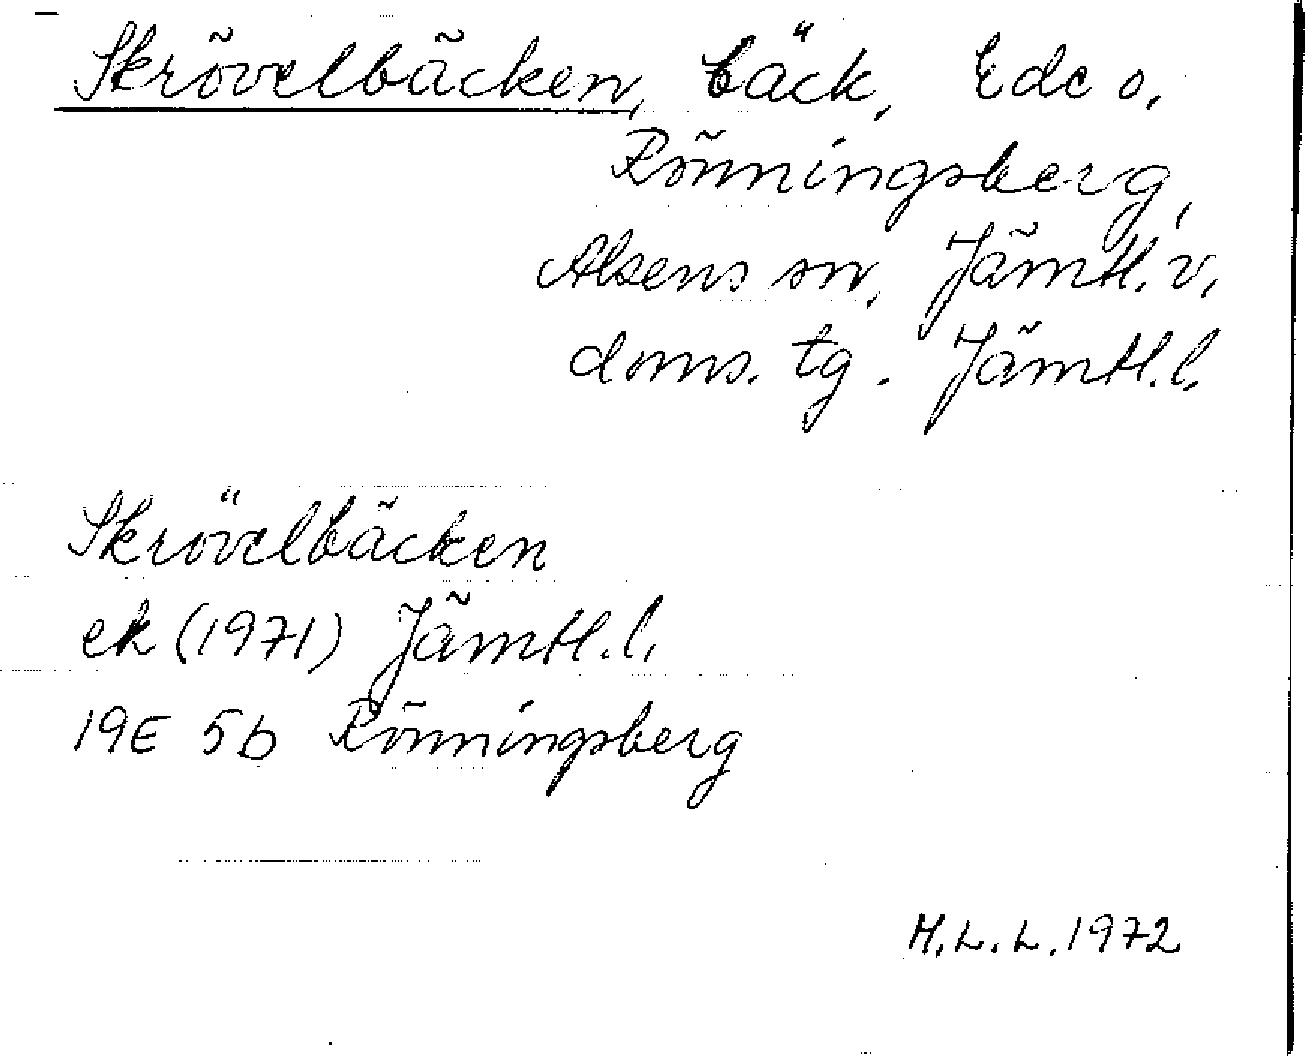 Skrövelbäcken, bäck, Ede o.
Rönningsberg,
Alsens sn, Jämtl. v.
doms. tg. Jämtl. l.
Skrövelbäcken
ek (1971) Jämtl. l.
19E 5b Rönningsberg
M.L.L. 1972